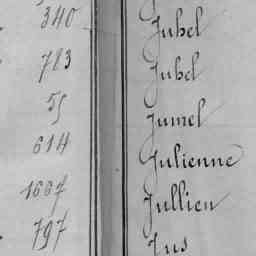 340 Jubel
783 Jubel
55 Jumel
614 Julienne
1667 Jullien
797 Jus